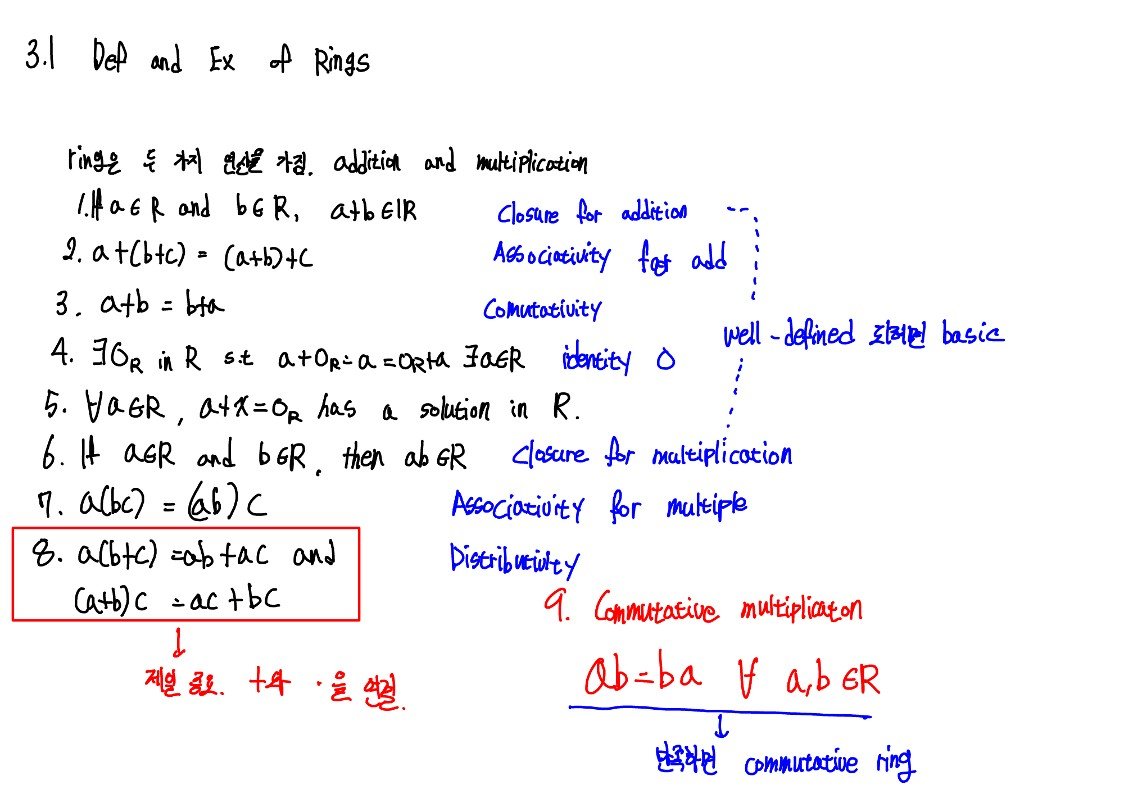 3.1 Def and Ex of Rings
ring은 두 가지 연산을 가짐. addition and multiplication
1. If a∈R and b∈R, a+b∈R Closure for addition
2. a+(b+c) = (a+b)+c Associativity for add
3. a+b = b+a Comutativity
well-defined 되려면 basic
4. ∃0_R in R s.t a+0_R=a=0_R+a ∃a∈R identity 0
5. ∀a∈R, a+x=0_R has a solution in R.
6. If a∈R and b∈R, then ab∈R Closure for multiplication
7. a(bc) = (ab)c Associativity for multiple
8. a(b+c) =ab+ac and Distributivity
(a+b)c =ac+bc
9. Commutative multiplicaton
제일 중요. +와 ·을 연결.
ab=ba ∀ a,b∈R
만족하면 commutative ring